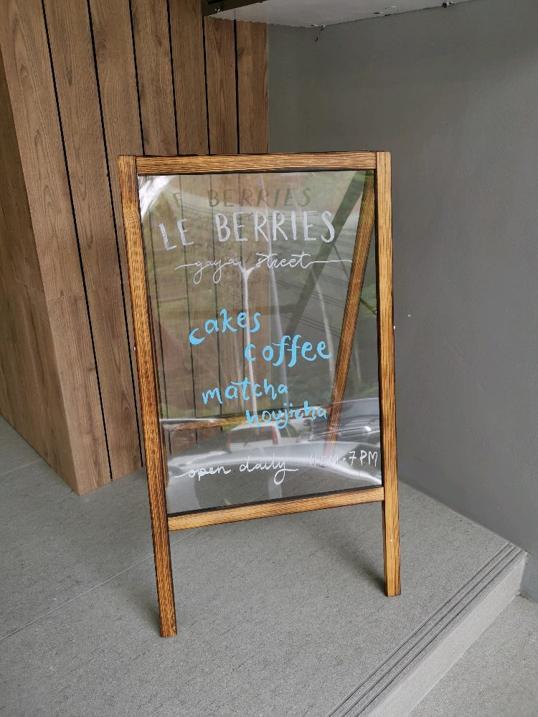 LE BERRIES
gaya street
cakes
coffee
matcha
houjicha
open daily
7PM